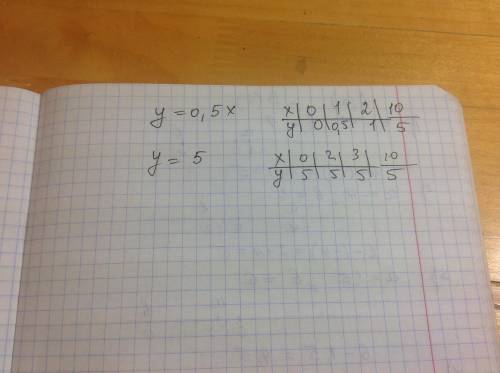 y = 0,5x
x | 0 | 1 | 2 | 10
y | 0 | 0,5 | 1 | 5
y = 5
x | 0 | 2 | 3 | 10
y | 5 | 5 | 5 | 5